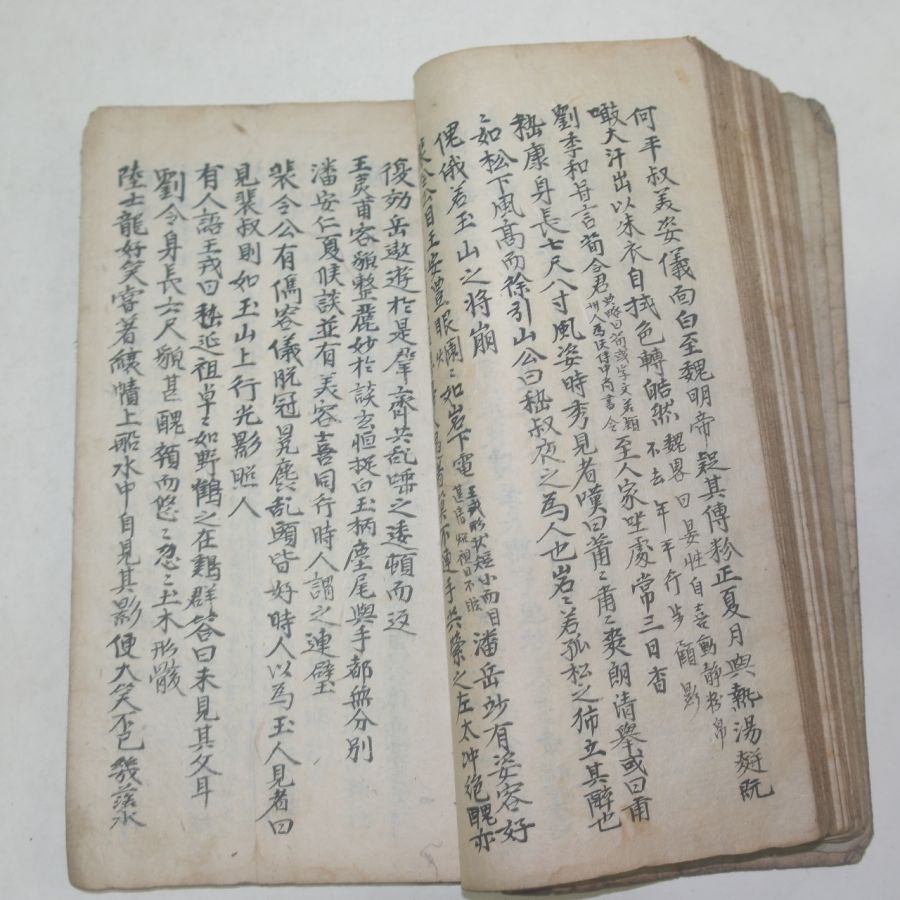 何平叔美姿儀面白至魏明帝疑其傅粉正夏月與熱湯麪既
噉大汗出以朱衣自拭色轉皎然 魏畧曰晏性自喜動静粉帛不去年平行步顧影
劉季和毎言荀令君 至人家坐處常三日香
嵇康身長七尺八寸風姿時秀見者嘆曰蕭〻甫〻爽朗清舉或曰甫
〻如松下風高而徐引山公曰嵇叔夜之為人也岩〻若孤松之獨立其醉也
傀俄若玉山之將崩
裴令公目王安豐眼爛〻如岩下電 王戎形状短小而目甚清 視日不眩 潘岳竗有姿容好
手共縈之左太冲絶醜亦
復効岳遨遊於是羣齊共乱唾之逶頓而返
王夷甫容貌整麗妙於談玄恒捉白玉柄麈尾與手都無分別
潘安仁夏侯談並有美容喜同行時人謂之連璧
裴令公有儁容儀脫冠冕麁乱頭皆好時人以為玉人見者曰
見裴叔則如玉山上行光影照人
有人語王戎曰嵇延祖卓〻如野鶴之在鷄群答曰未見其父耳
劉令身長六尺貌甚醜顇而悠〻忽〻土木形骸
陸士龍好笑甞著縗幘上船水中自見其影便大笑不已幾落水